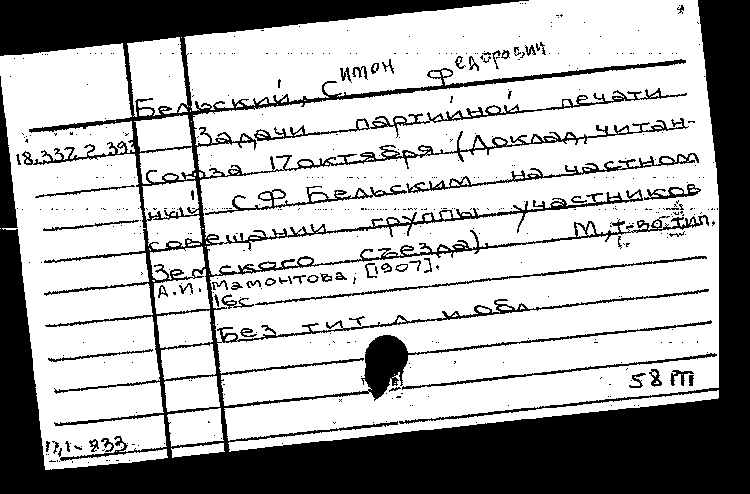 Бельский, Симон Федорович
18.337.2.393
Задачи партийной печати
Союза 17 октября. (Доклад, читан-
ный С.Ф. Бельским на частном
совещании группы участников
Земского съезда). М., т-во тип.
А.И. Мамонтова, [1907].
16с
Без тит. л. и обл.
58 m
17,1-833